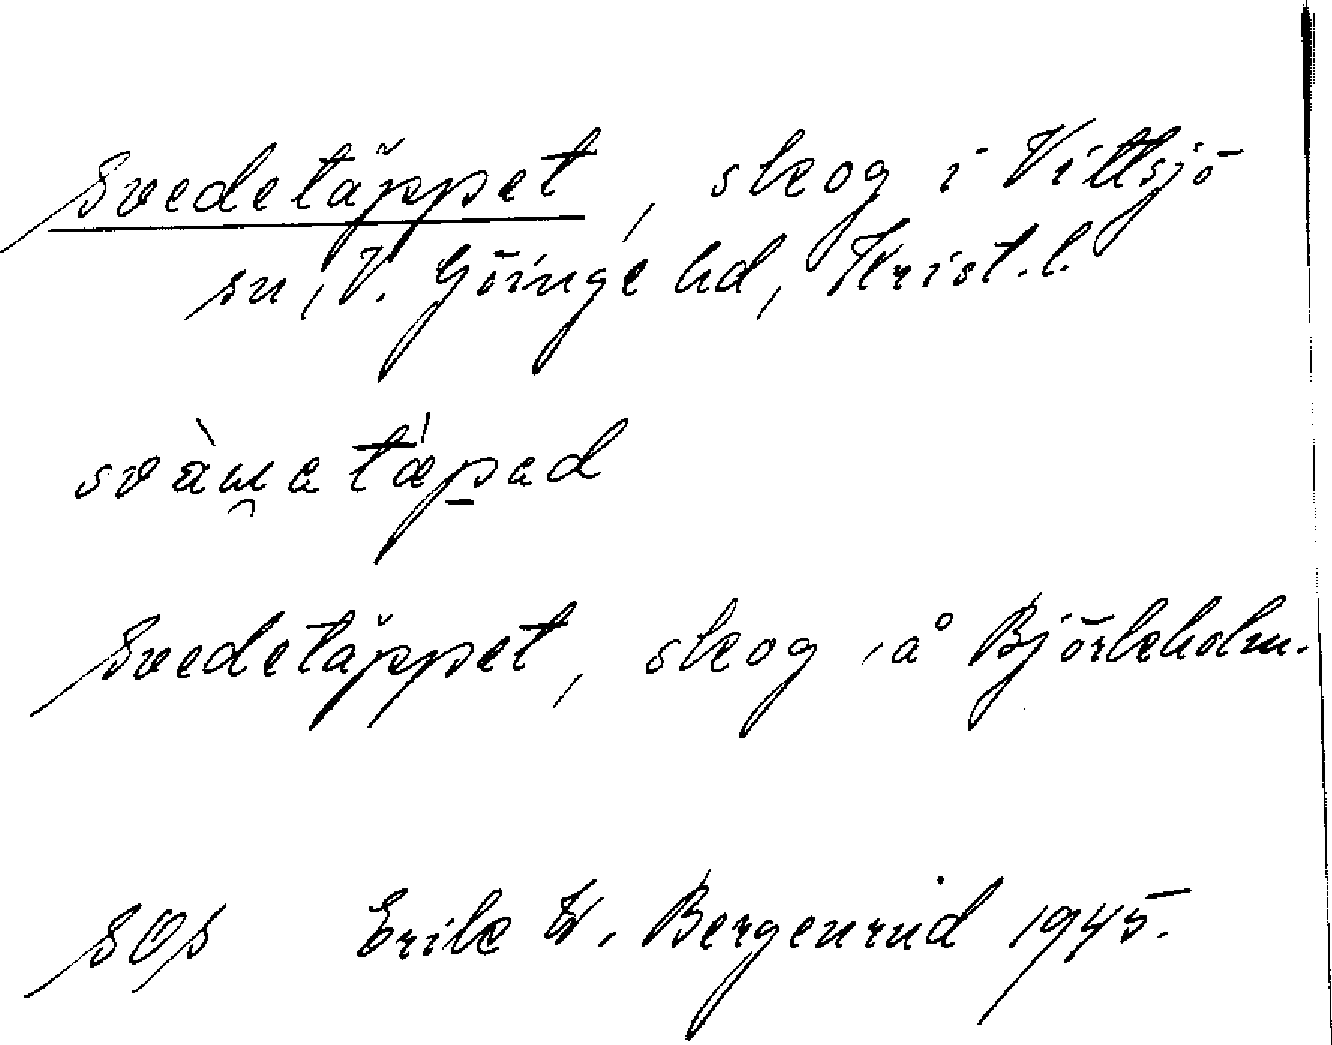 Svedetäppet, skog i Vittsjö
sn, V. Göinge hd, Krist. l.
Svedetäppet, skog å Björkeholm.
SOS Erik W. Bergenrud 1945.